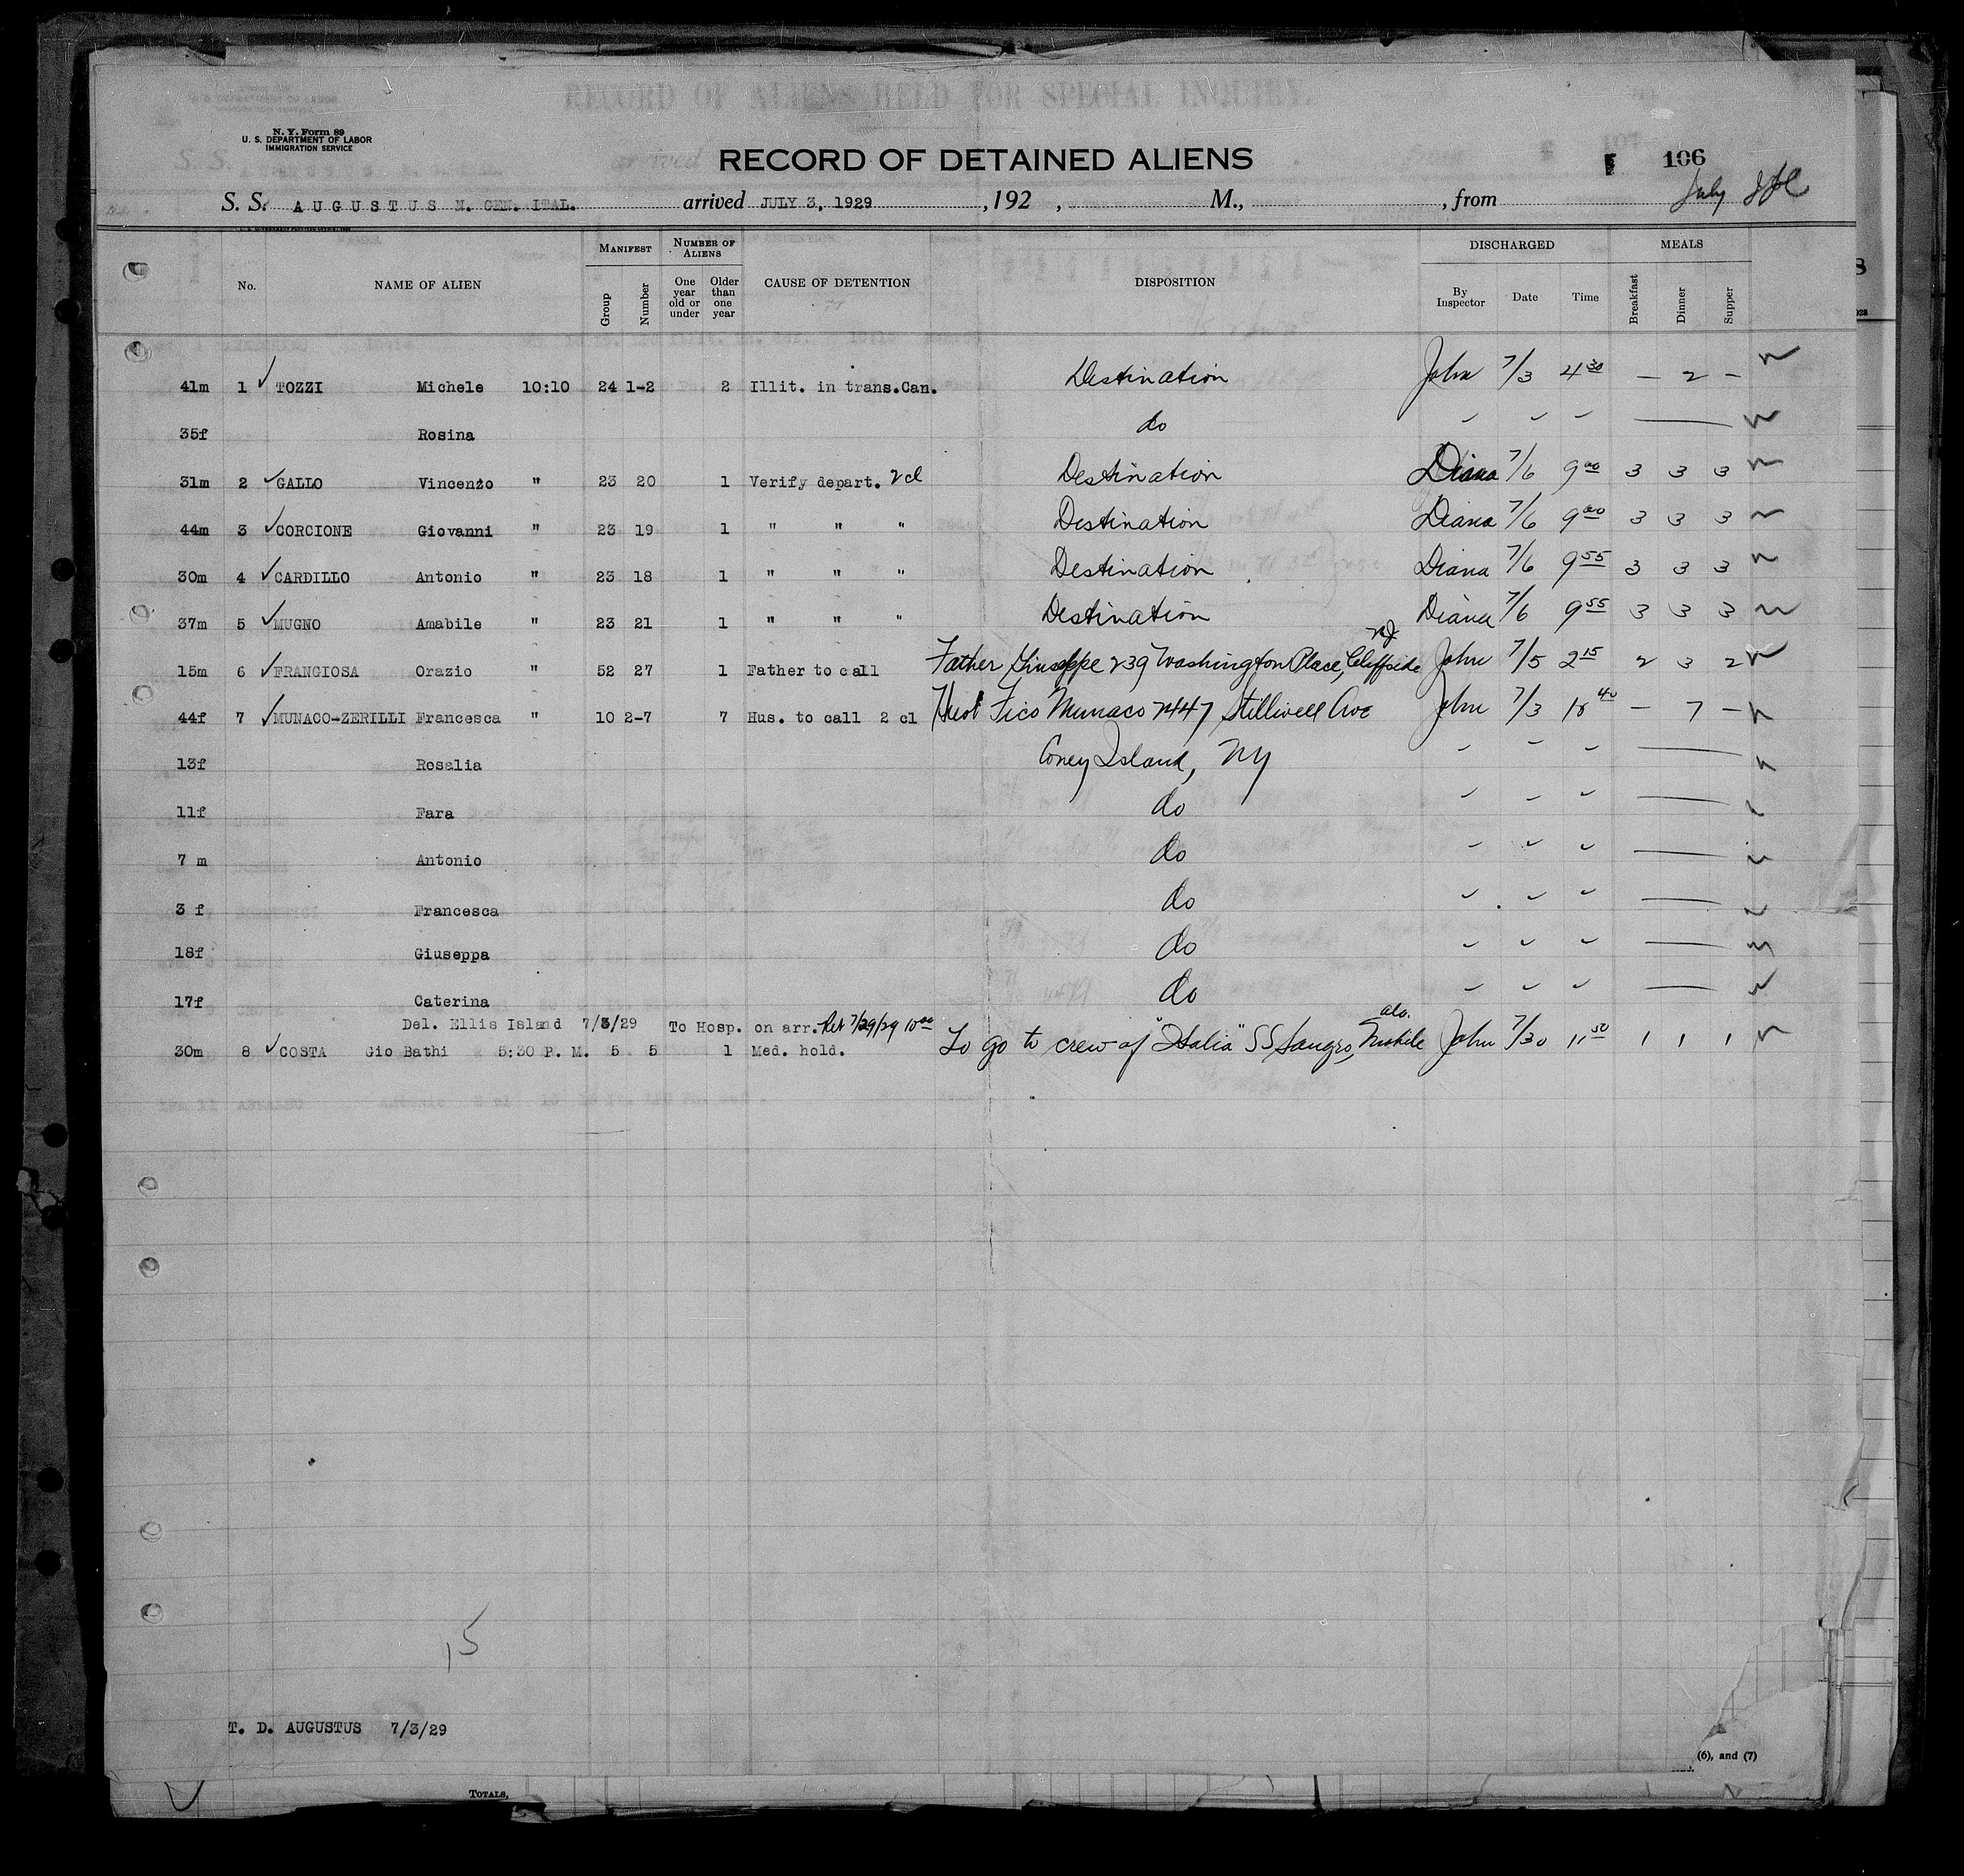 RECORD OF ALIENS HELD FOR SPECIAL INQUIRY.
N. Y. Form 89
U. S. DEPARTMENT OF LABOR
IMMIGRATION SERVICE
RECORD OF DETAINED ALIENS
106
S. S. AUGUSTUS N. GEN. ITAL. arrived JULY 3, 1929 , 192 , M., , from July
No. NAME OF ALIEN MANIFEST Group Number NUMBER OF ALIENS One year old or under Older than one year CAUSE OF DETENTION DISPOSITION DISCHARGED By Inspector Date Time MEALS Breakfast Dinner Supper
41m 1 ✓ TOZZI Michele 10:10 24 1-2 2 Illit. in trans.Can. Destination John 7/3 4 30 – 2 –
35f Rosina do
31m 2 ✓ GALLO Vincenzo " 23 20 1 Verify depart. 2 cl Destination Diana 7/6 9 00 3 3 3
44m 3 ✓ CORCIONE Giovanni " 23 19 1 " " " Destination Diana 7/6 9 00 3 3 3
30m 4 ✓ CARDILLO Antonio " 23 18 1 " " " Destination Diana 7/6 9 55 3 3 3
37m 5 ✓ MUGNO Amabile " 23 21 1 " " " Destination Diana 7/6 9 55 3 3 3
15m 6 ✓ FRANGIOSA Orazio " 52 27 1 Father to call Father Giuseppe 239 Washington Place, Cliffside NJ John 7/5 2 15 2 3 2
44f 7 ✓ MUNACO-ZERILLI Francesca " 10 2-7 7 Hus. to call 2 cl Hus Fico Munaco 2447 Stillwell Ave John 7/3 40 – 7 –
13f Rosalia Coney Island, NY
11f Fara do
7 m Antonio do
3 f Francesca do
18f Giuseppa do
17f Caterina do
Del. Ellis Island 7/3/29 To Hosp. on arr. Ret 7/29/29 10 00
30m 8 ✓ COSTA Gio Bathi 5:30 P. M. 5 5 1 Med. hold. To go to crew of "Italia" SS Sangro, Mobile Ala. John 7/30 11 50 1 1 1
15
T. D. AUGUSTUS 7/3/29
(6), and (7)
TOTALS,